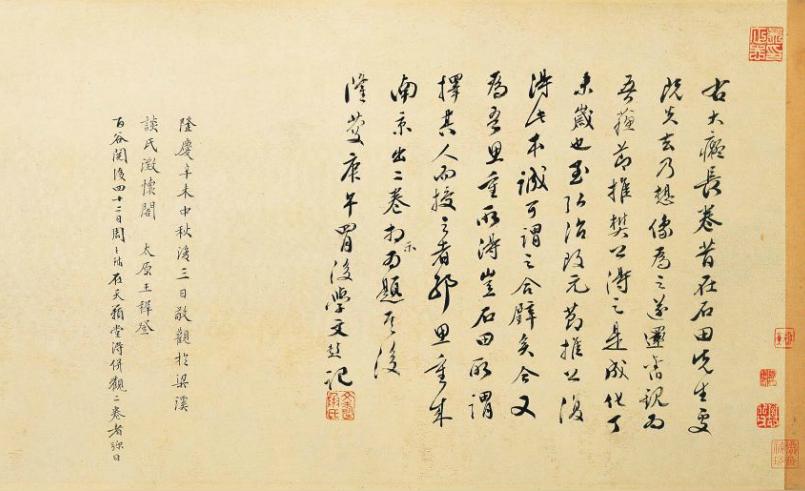 右大癡長卷昔在石田先生處
既失去乃想像為之遂還舊觀為
吾蘇節推樊公得之是成化丁
未歲也至弘治改元節推公復
得此本誠可謂之合璧矣今又
為吾思重所得豈石田所謂
擇其人而授之者耶思重來
南京出二卷相示為題其後
隆慶庚午四月後學文彭記
隆慶辛未中秋後三日敬觀於梁溪
談氏澂懷閣 太原王穉登
百谷閱後四十二日周天球在天籟堂得併觀二卷者弥日